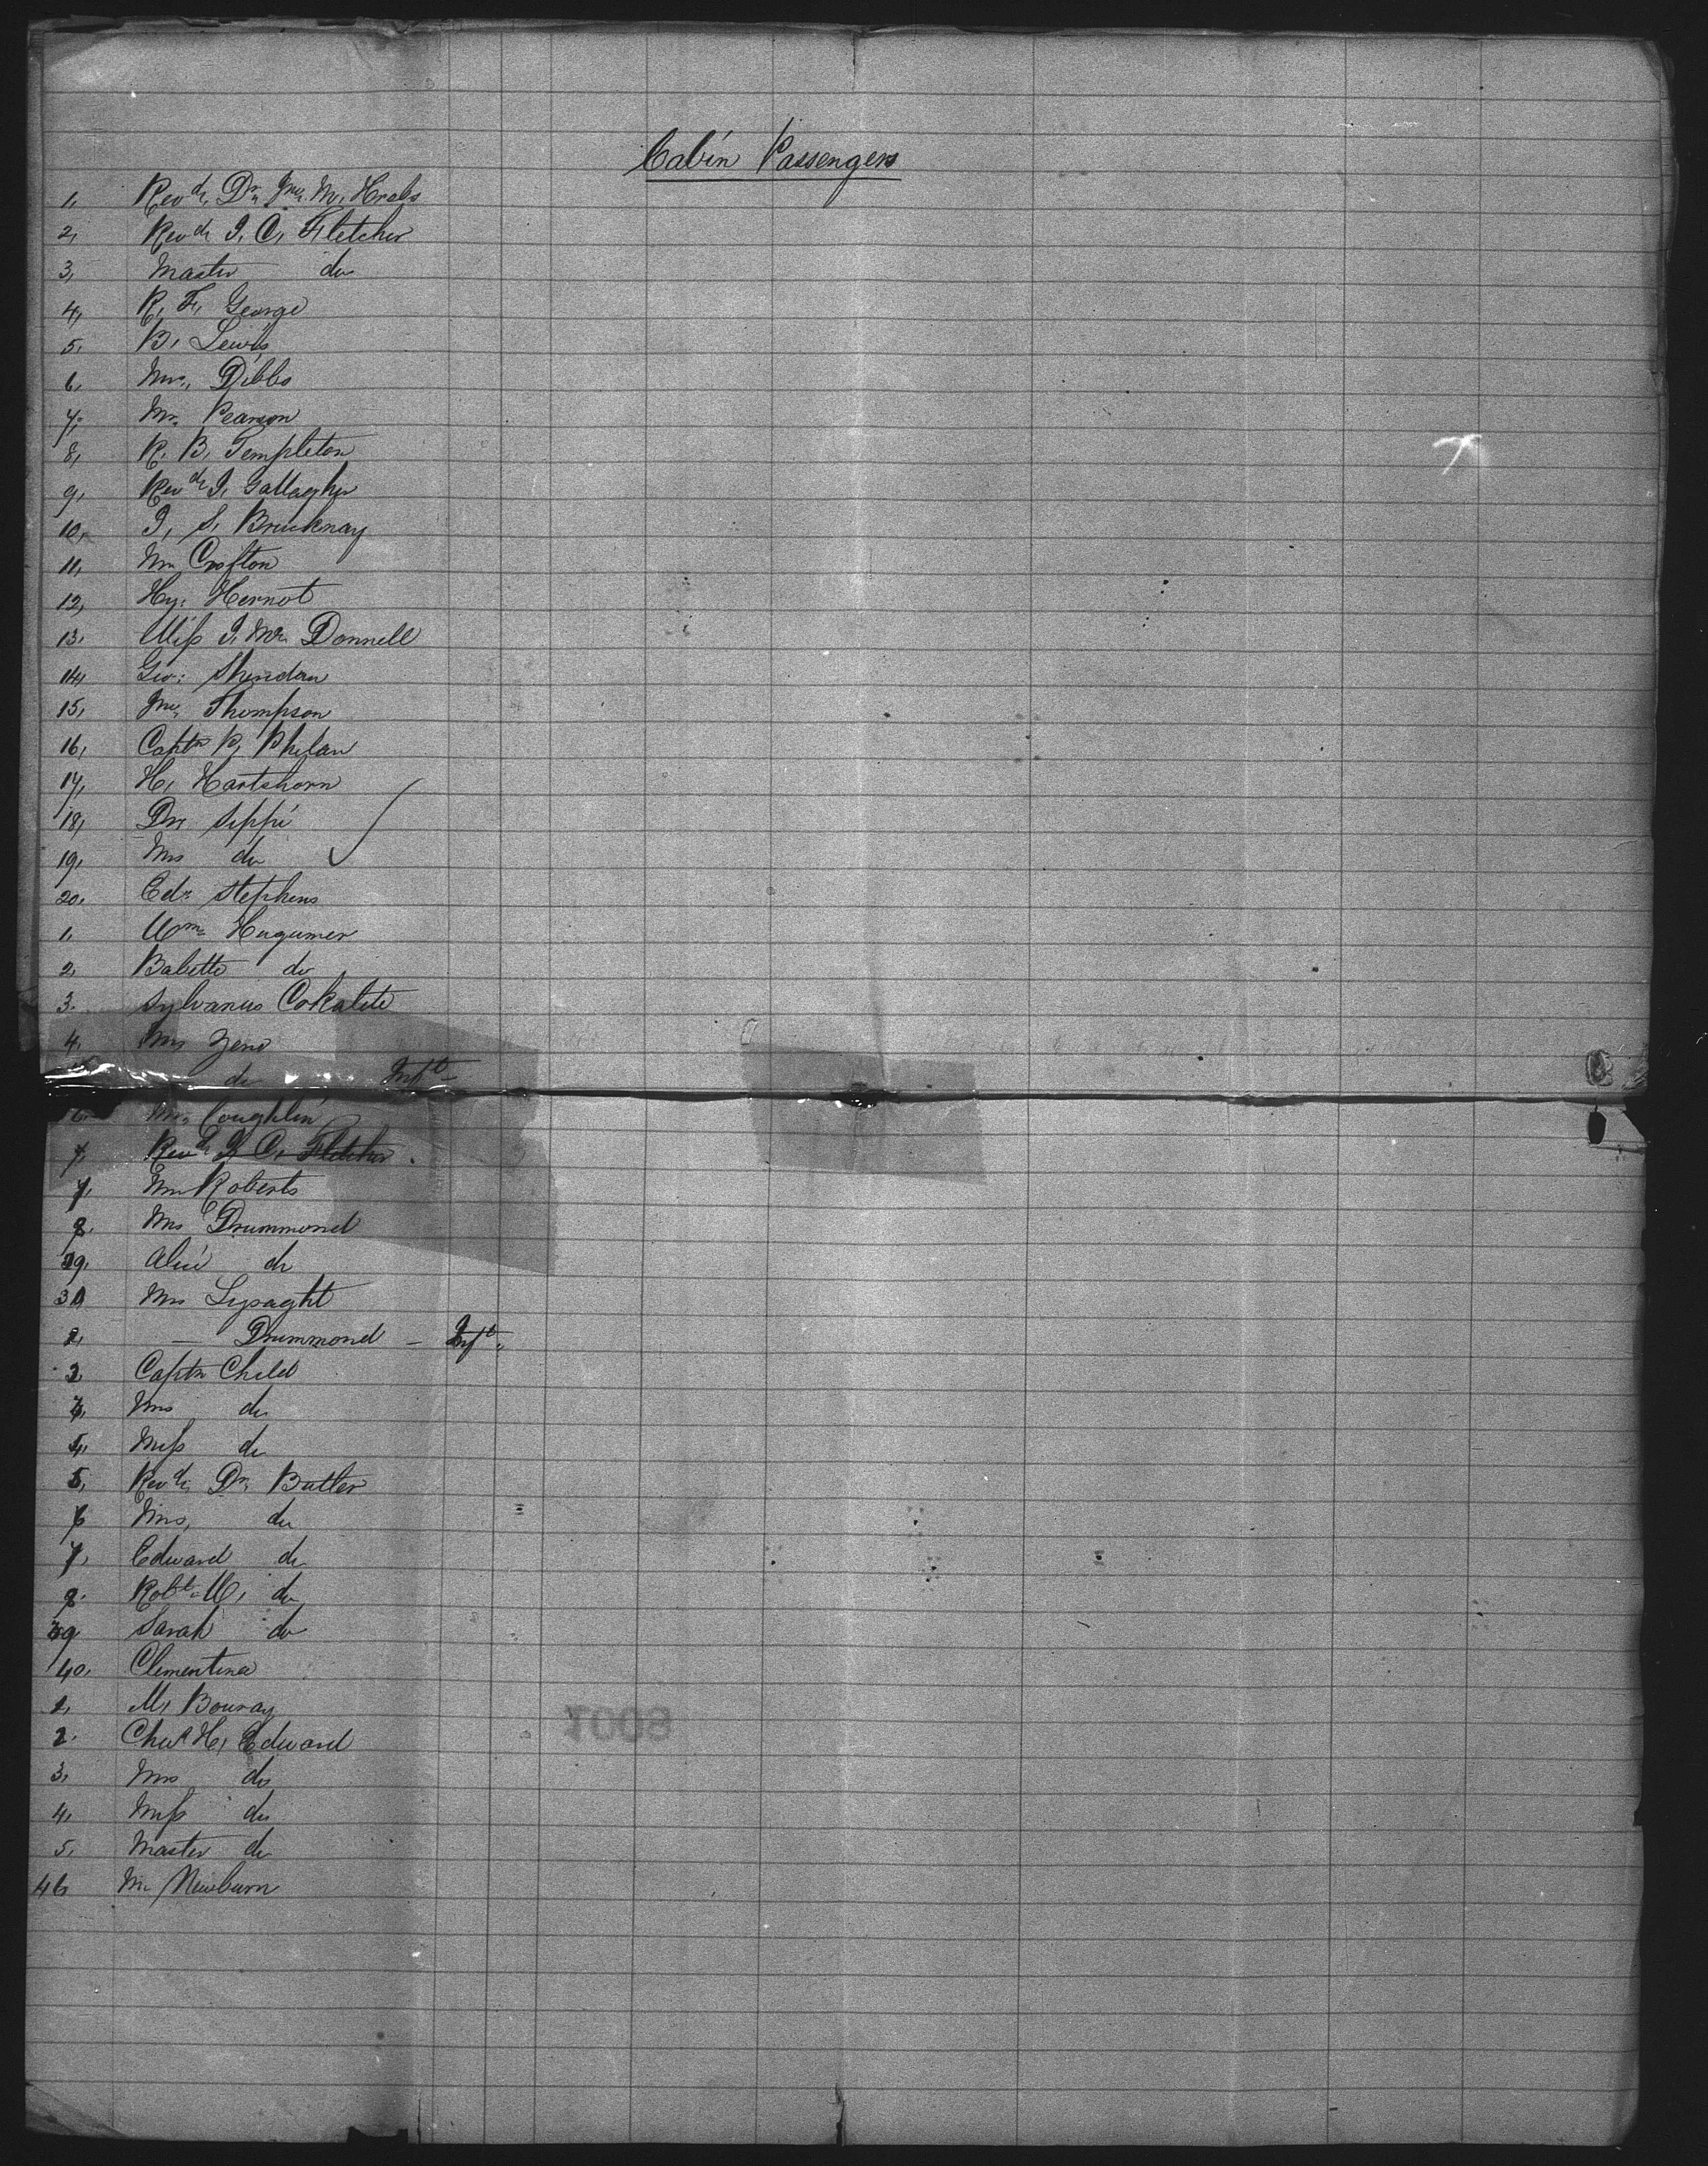 Cabin Passengers
1, Revd. Dr. Jno. M. Krebs
2, Revd. J. C. Fletcher
3, Master do
4, R. F. George
5, B. Lewis
6, Mrs. Dibbs
7, Mr. Pearson
8, R. B. Templeton
9, Revd. J. Gallagher
10, J. S. Brucknay
11, Mr Crofton
12, Hy: Hernot
13, Miss J. Mc. Donnell
14, Geo: Sheridan
15, Jno. Thompson
16, Captn P. Phelan
17, H. Hartshorn
18, Dr. Sippi
19, Mrs do
20, Ed. Stephens
1, Wm. Hugumer
2, Babette do
3. Sylvanus Cokalete
4, Mrs Zeno
do Inft
6 Mr. Coughlin
7, Revd. J. C. Fletcher
7, Mr Roberts
8. Mrs Drummond
29, Alice do
30 Mrs Lysaght
1, — Drummond — Inft.
2 Captn Child
3, Mrs do
4, Miss do
5, Revd. Dr. Butler
6 Mrs, do
7, Edward do
8. Robt. W. do
39 Sarah do
40, Clementina
1, M. Bouray
2. Chas H. Edward
3, Mrs do
4, Miss do
5, Master do
46 Mr Newburn
1008